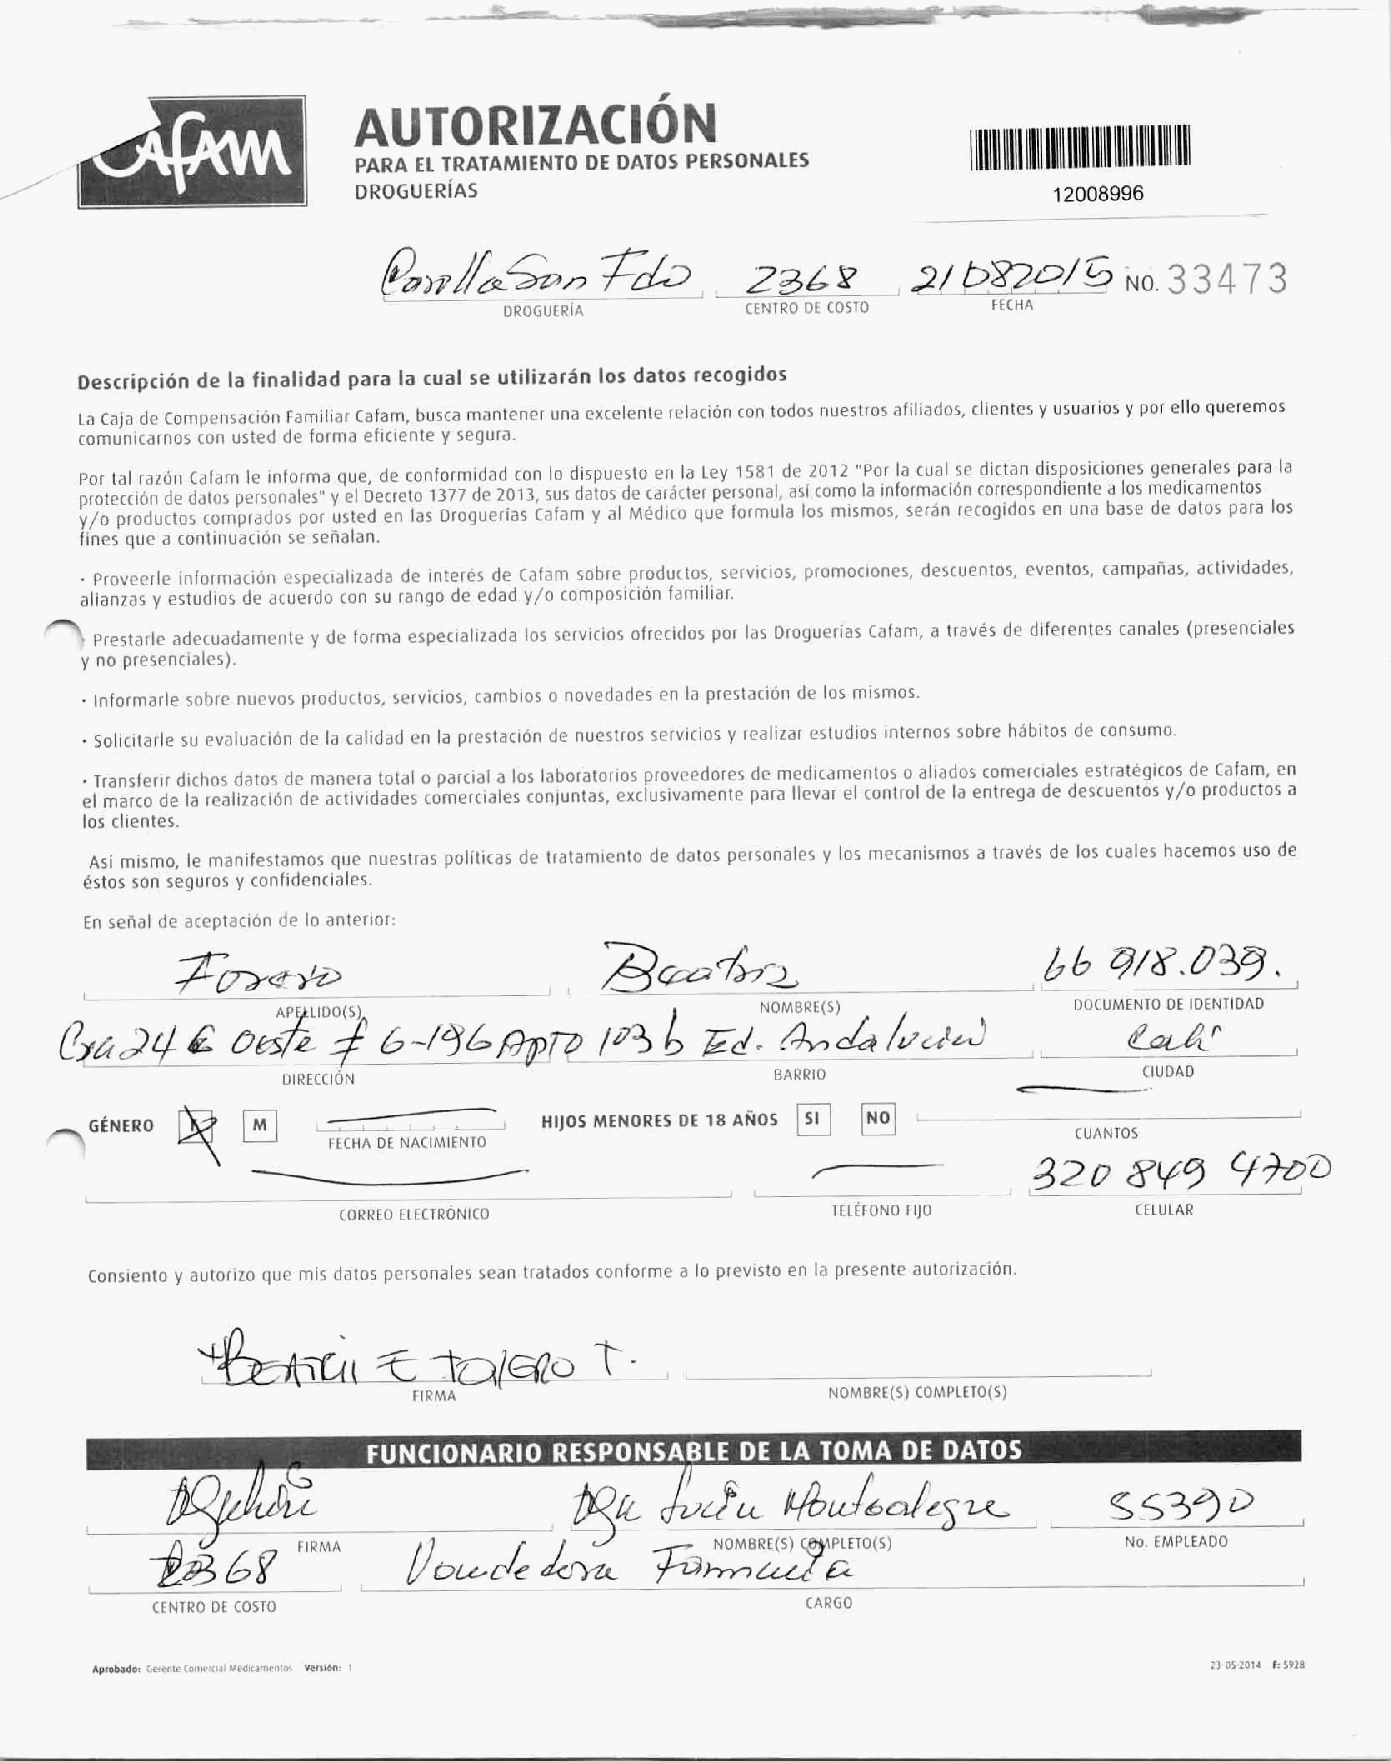 Cafam
AUTORIZACIÓN
PARA EL TRATAMIENTO DE DATOS PERSONALES
DROGUERÍAS
12008996
San Fdo 2368 21082015 NO. 33473
DROGUERÍA CENTRO DE COSTO FECHA
Descripción de la finalidad para la cual se utilizarán los datos recogidos
La Caja de Compensación Familiar Cafam, busca mantener una excelente relación con todos nuestros afiliados, clientes y usuarios y por ello queremos
comunicarnos con usted de forma eficiente y segura.
Por tal razón Cafam le informa que, de conformidad con lo dispuesto en la Ley 1581 de 2012 "Por la cual se dictan disposiciones generales para la
protección de datos personales" y el Decreto 1377 de 2013, sus datos de carácter personal, así como la información correspondiente a los medicamentos
y/o productos comprados por usted en las Droguerías Cafam y al Médico que formula los mismos, serán recogidos en una base de datos para los
fines que a continuación se señalan.
· Proveerle información especializada de interés de Cafam sobre productos, servicios, promociones, descuentos, eventos, campañas, actividades,
alianzas y estudios de acuerdo con su rango de edad y/o composición familiar.
· Prestarle adecuadamente y de forma especializada los servicios ofrecidos por las Droguerías Cafam, a través de diferentes canales (presenciales
y no presenciales).
· Informarle sobre nuevos productos, servicios, cambios o novedades en la prestación de los mismos.
· Solicitarle su evaluación de la calidad en la prestación de nuestros servicios y realizar estudios internos sobre hábitos de consumo.
· Transferir dichos datos de manera total o parcial a los laboratorios proveedores de medicamentos o aliados comerciales estratégicos de Cafam, en
el marco de la realización de actividades comerciales conjuntas, exclusivamente para llevar el control de la entrega de descuentos y/o productos a
los clientes.
Así mismo, le manifestamos que nuestras políticas de tratamiento de datos personales y los mecanismos a través de los cuales hacemos uso de
éstos son seguros y confidenciales.
En señal de aceptación de lo anterior:
Forero Beatriz 66 918.039.
APELLIDO(S) NOMBRE(S) DOCUMENTO DE IDENTIDAD
Cra 24 Oeste # 6-196 Apto 103 b Ed. Andalucia Cali
DIRECCIÓN BARRIO CIUDAD
GÉNERO M HIJOS MENORES DE 18 AÑOS SI NO
FECHA DE NACIMIENTO CUANTOS
320 849 4700
CORREO ELECTRÓNICO TELÉFONO FIJO CELULAR
Consiento y autorizo que mis datos personales sean tratados conforme a lo previsto en la presente autorización.
Beatriz E Talero T.
FIRMA NOMBRE(S) COMPLETO(S)
FUNCIONARIO RESPONSABLE DE LA TOMA DE DATOS
Lucia Montealegre 55390
FIRMA NOMBRE(S) COMPLETO(S) No. EMPLEADO
2368 Vendedora Farmacia
CENTRO DE COSTO CARGO
Aprobado: Gerente Comercial Medicamentos Versión: 1 23-05-2014 F: 5928